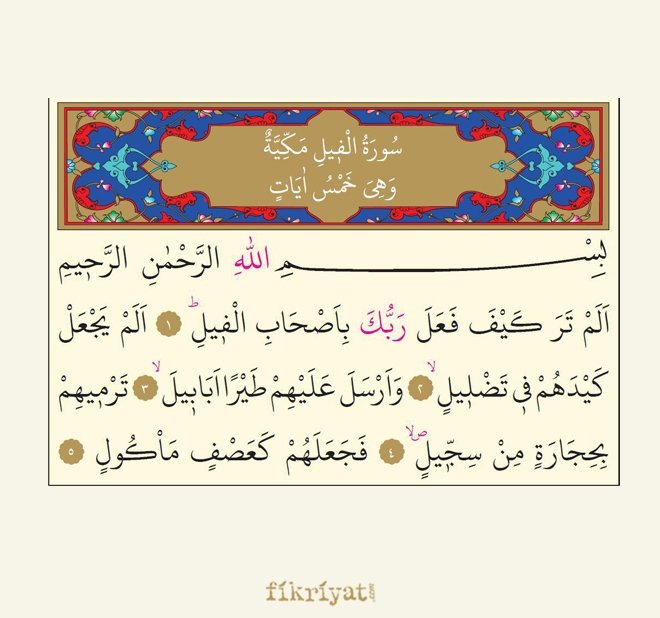 سُورَةُ الْفٖيلِ مَكِّيَّةٌ
وَهِىَ خَمْسُ اٰيَاتٍ
بِسْمِ اللّٰهِ الرَّحْمٰنِ الرَّحٖيمِ
اَلَمْ تَرَ كَيْفَ فَعَلَ رَبُّكَ بِاَصْحَابِ الْفٖيلِؕ ﴿١﴾ اَلَمْ يَجْعَلْ
كَيْدَهُمْ فٖى تَضْلٖيلٍۙ ﴿٢﴾ وَاَرْسَلَ عَلَيْهِمْ طَيْرًا اَبَابٖيلَۙ ﴿٣﴾ تَرْمٖيهِمْ
بِحِجَارَةٍ مِنْ سِجّٖيلٍۙۖ ﴿٤﴾ فَجَعَلَهُمْ كَعَصْفٍ مَاْكُولٍ ﴿٥﴾
fikriyat.com